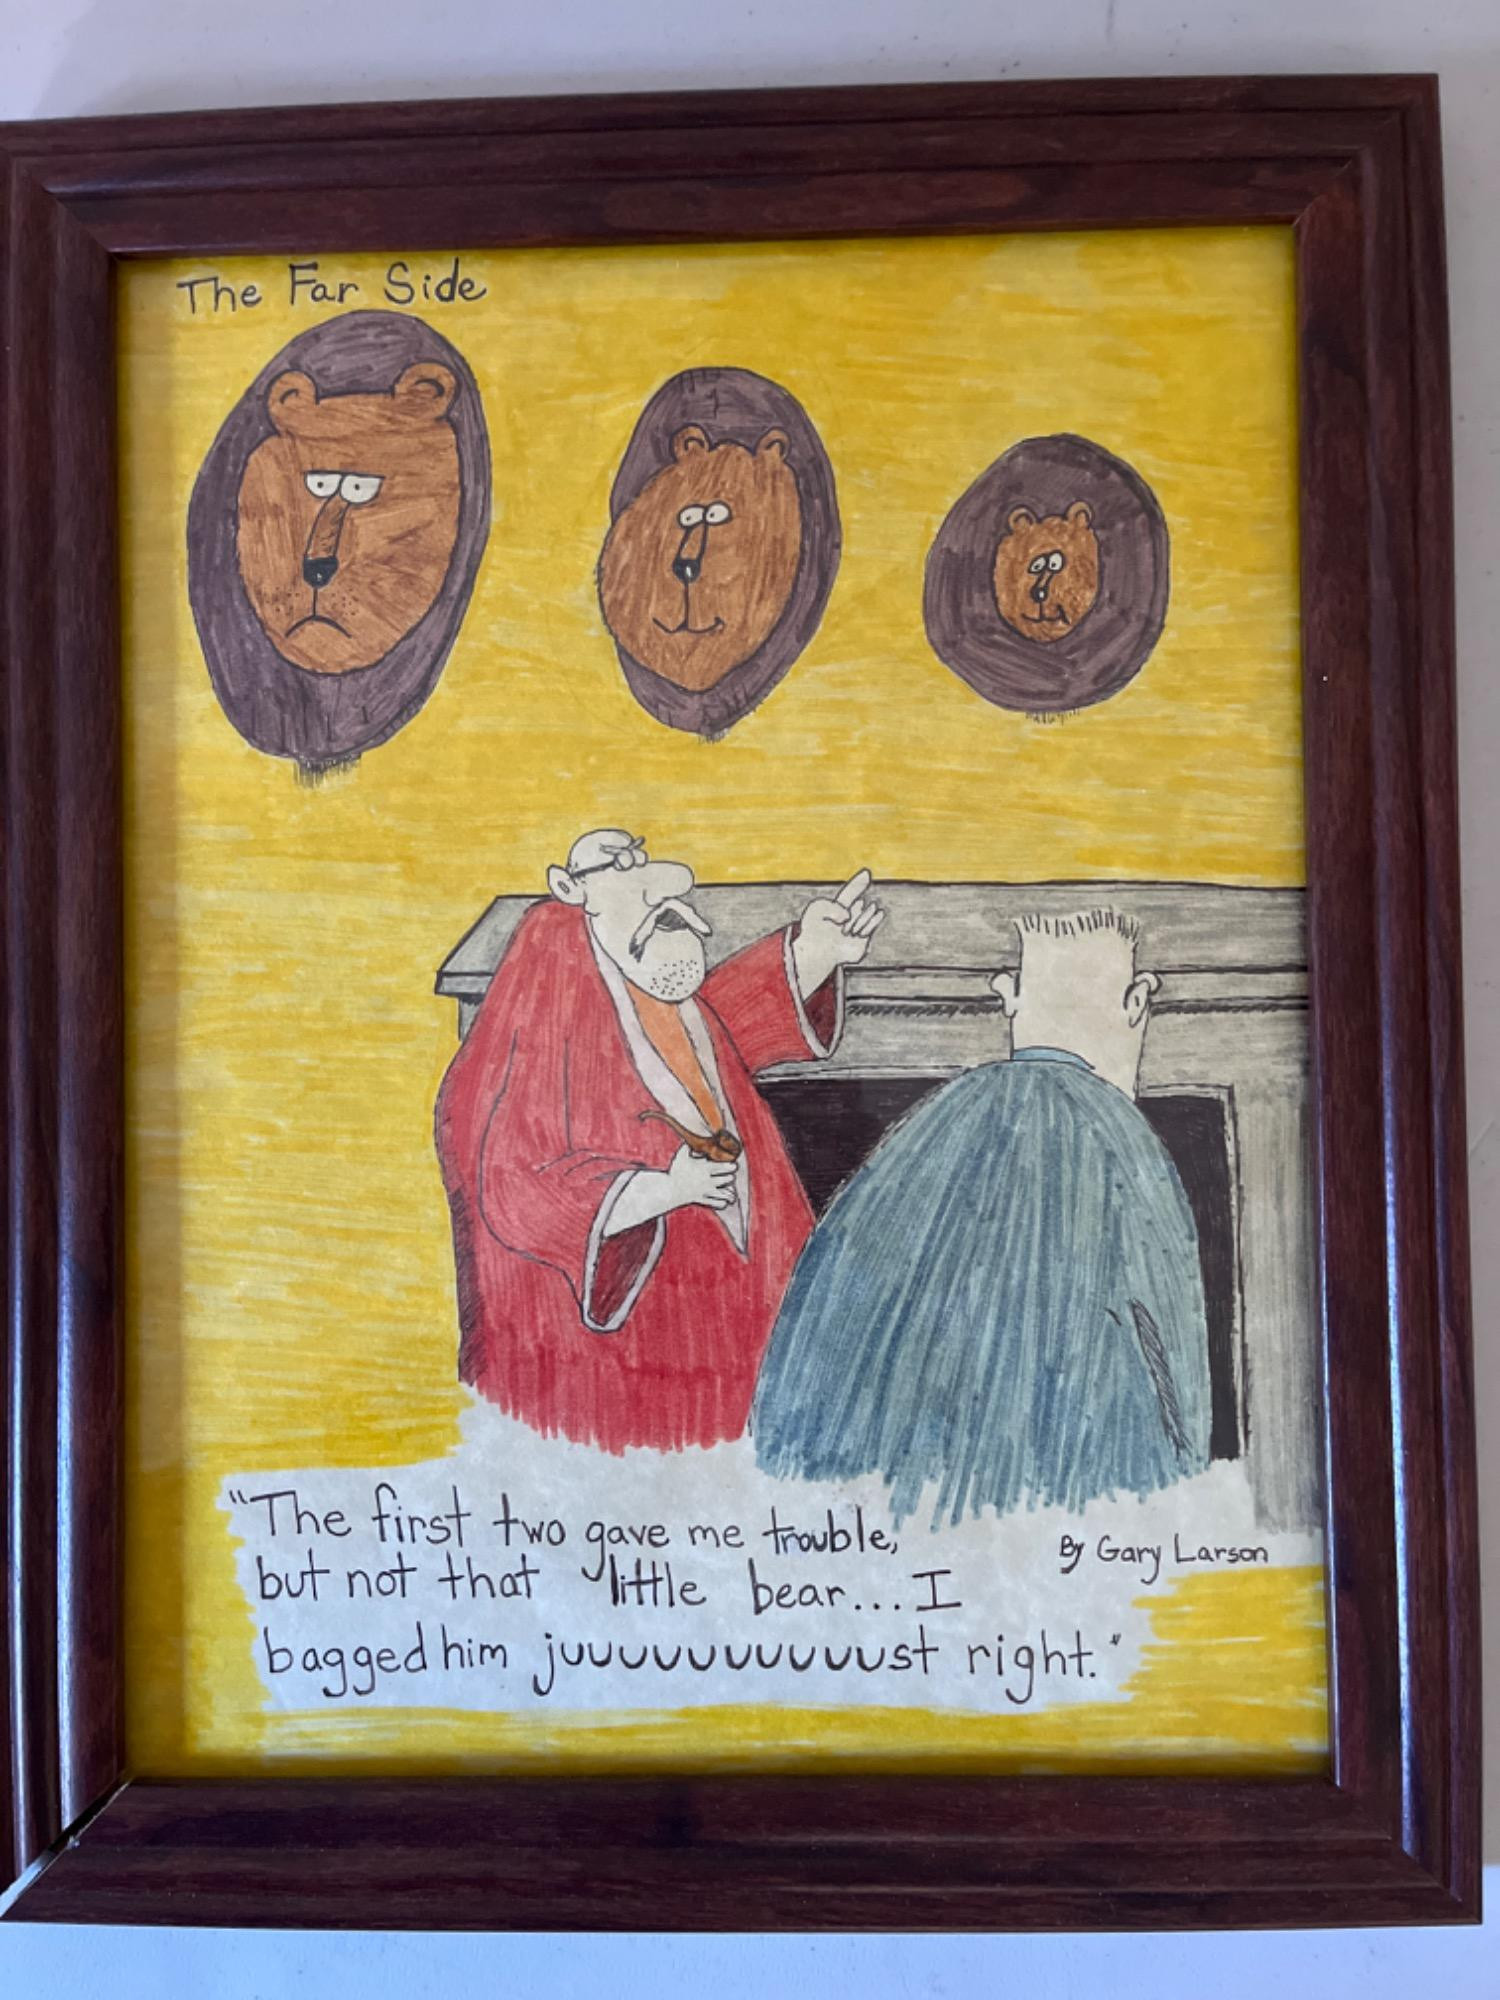 The Far Side
"The first two gave me trouble,
but not that little bear... I
bagged him juuuuuuuuuuust right."
By Gary Larson